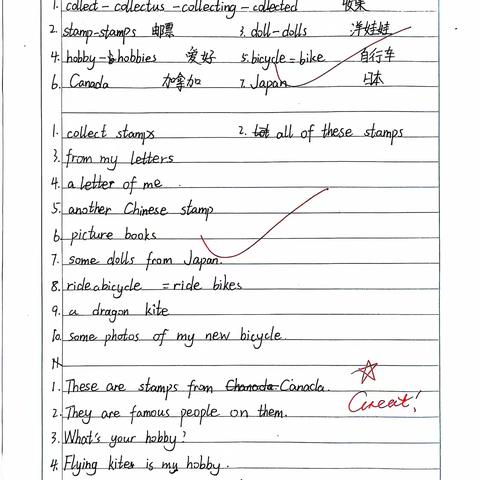 1. collect - collectus - collecting - collected 收集
2. stamp-stamps 邮票 3. doll-dolls 洋娃娃
4. hobby-hobbies 爱好 5. bicycle = bike 自行车
6. Canada 加拿加 7. Japan 日本
1. collect stamps 2. all of these stamps
3. from my letters
4. a letter of me
5. another Chinese stamp
6. picture books
7. some dolls from Japan.
8. ride a bicycle = ride bikes
9. a dragon kite
10. some photos of my new bicycle.
1. These are stamps from Chanada Canada.
2. They are famous people on them.
Great!
3. What's your hobby?
4. Flying kites is my hobby.